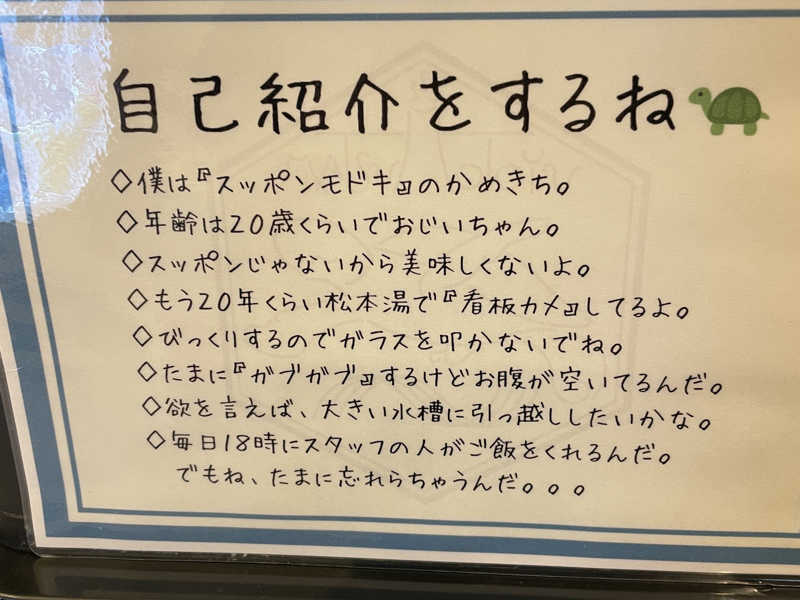 自己紹介をするね
◇僕は『スッポンモドキ』のかめきち。
◇年齢は20歳くらいでおじいちゃん。
◇スッポンじゃないから美味しくないよ。
◇もう20年くらい松本湯で『看板カメ』してるよ。
◇びっくりするのでガラスを叩かないでね。
◇たまに『ガブガブ』するけどお腹が空いてるんだ。
◇欲を言えば、大きい水槽に引っ越ししたいかな。
◇毎日18時にスタッフの人がご飯をくれるんだ。
でもね、たまに忘れらちゃうんだ。。。